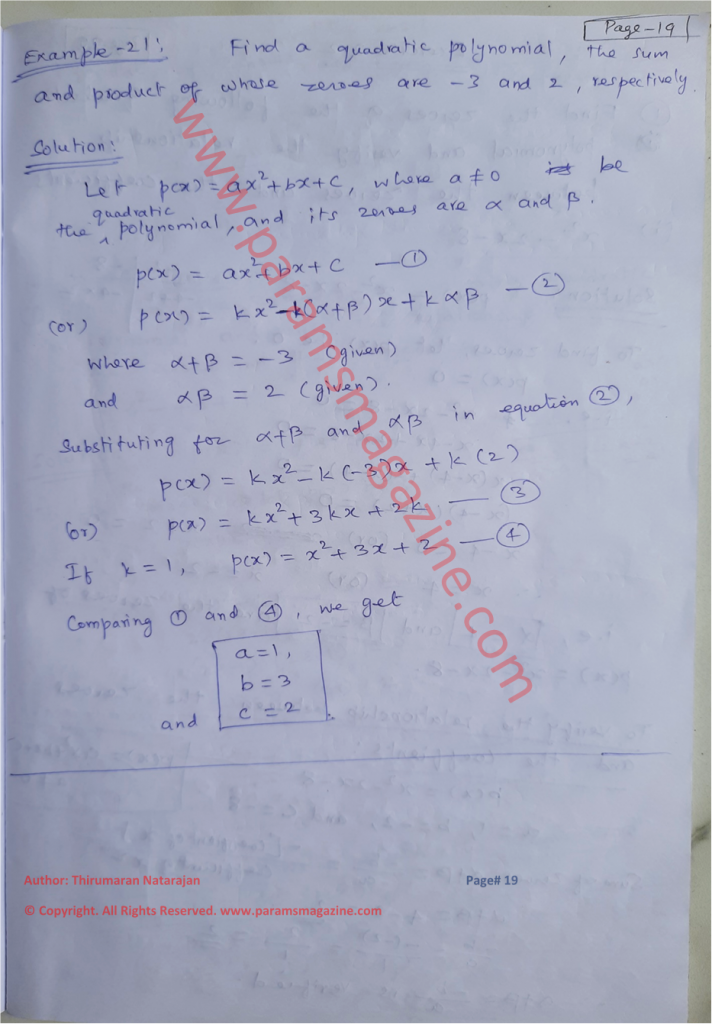 Page-19
Example-21: Find a quadratic polynomial, the sum
and product of whose zeroes are -3 and 2, respectively.
Solution:
Let p(x) = ax²+bx+c, where a≠0 be
the quadratic polynomial, and its zeroes are α and β.
p(x) = ax²+bx+c —①
(or) p(x) = kx²-k(α+β)x+kαβ —②
where α+β = -3 (given)
and αβ = 2 (given).
Substituting for α+β and αβ in equation ②,
p(x) = kx²-k(-3)x+k(2)
(or) p(x) = kx²+3kx+2k —③
If k=1, p(x) = x²+3x+2 —④
Comparing ① and ④, we get
a=1,
b=3
and c=2
www.paramsmagazine.com
Author: Thirumaran Natarajan Page# 19
© Copyright. All Rights Reserved. www.paramsmagazine.com